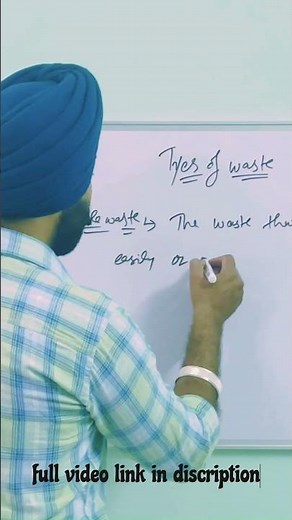 Types of waste
waste → The waste
easily or
full video link in discription